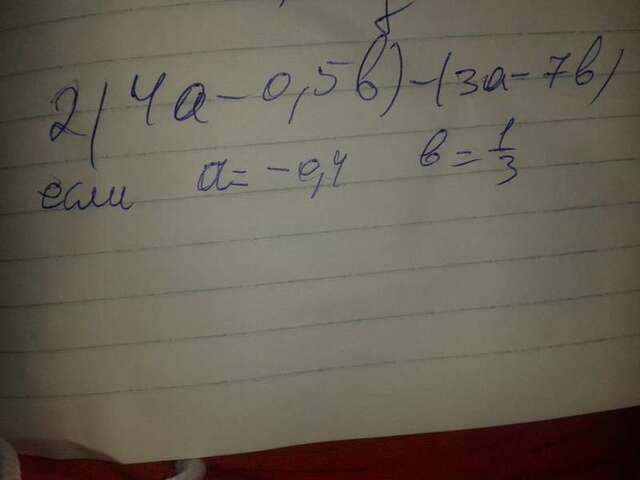 2(4а-0,5в)-(3а-7в)
если а=-0,4 в=1/3